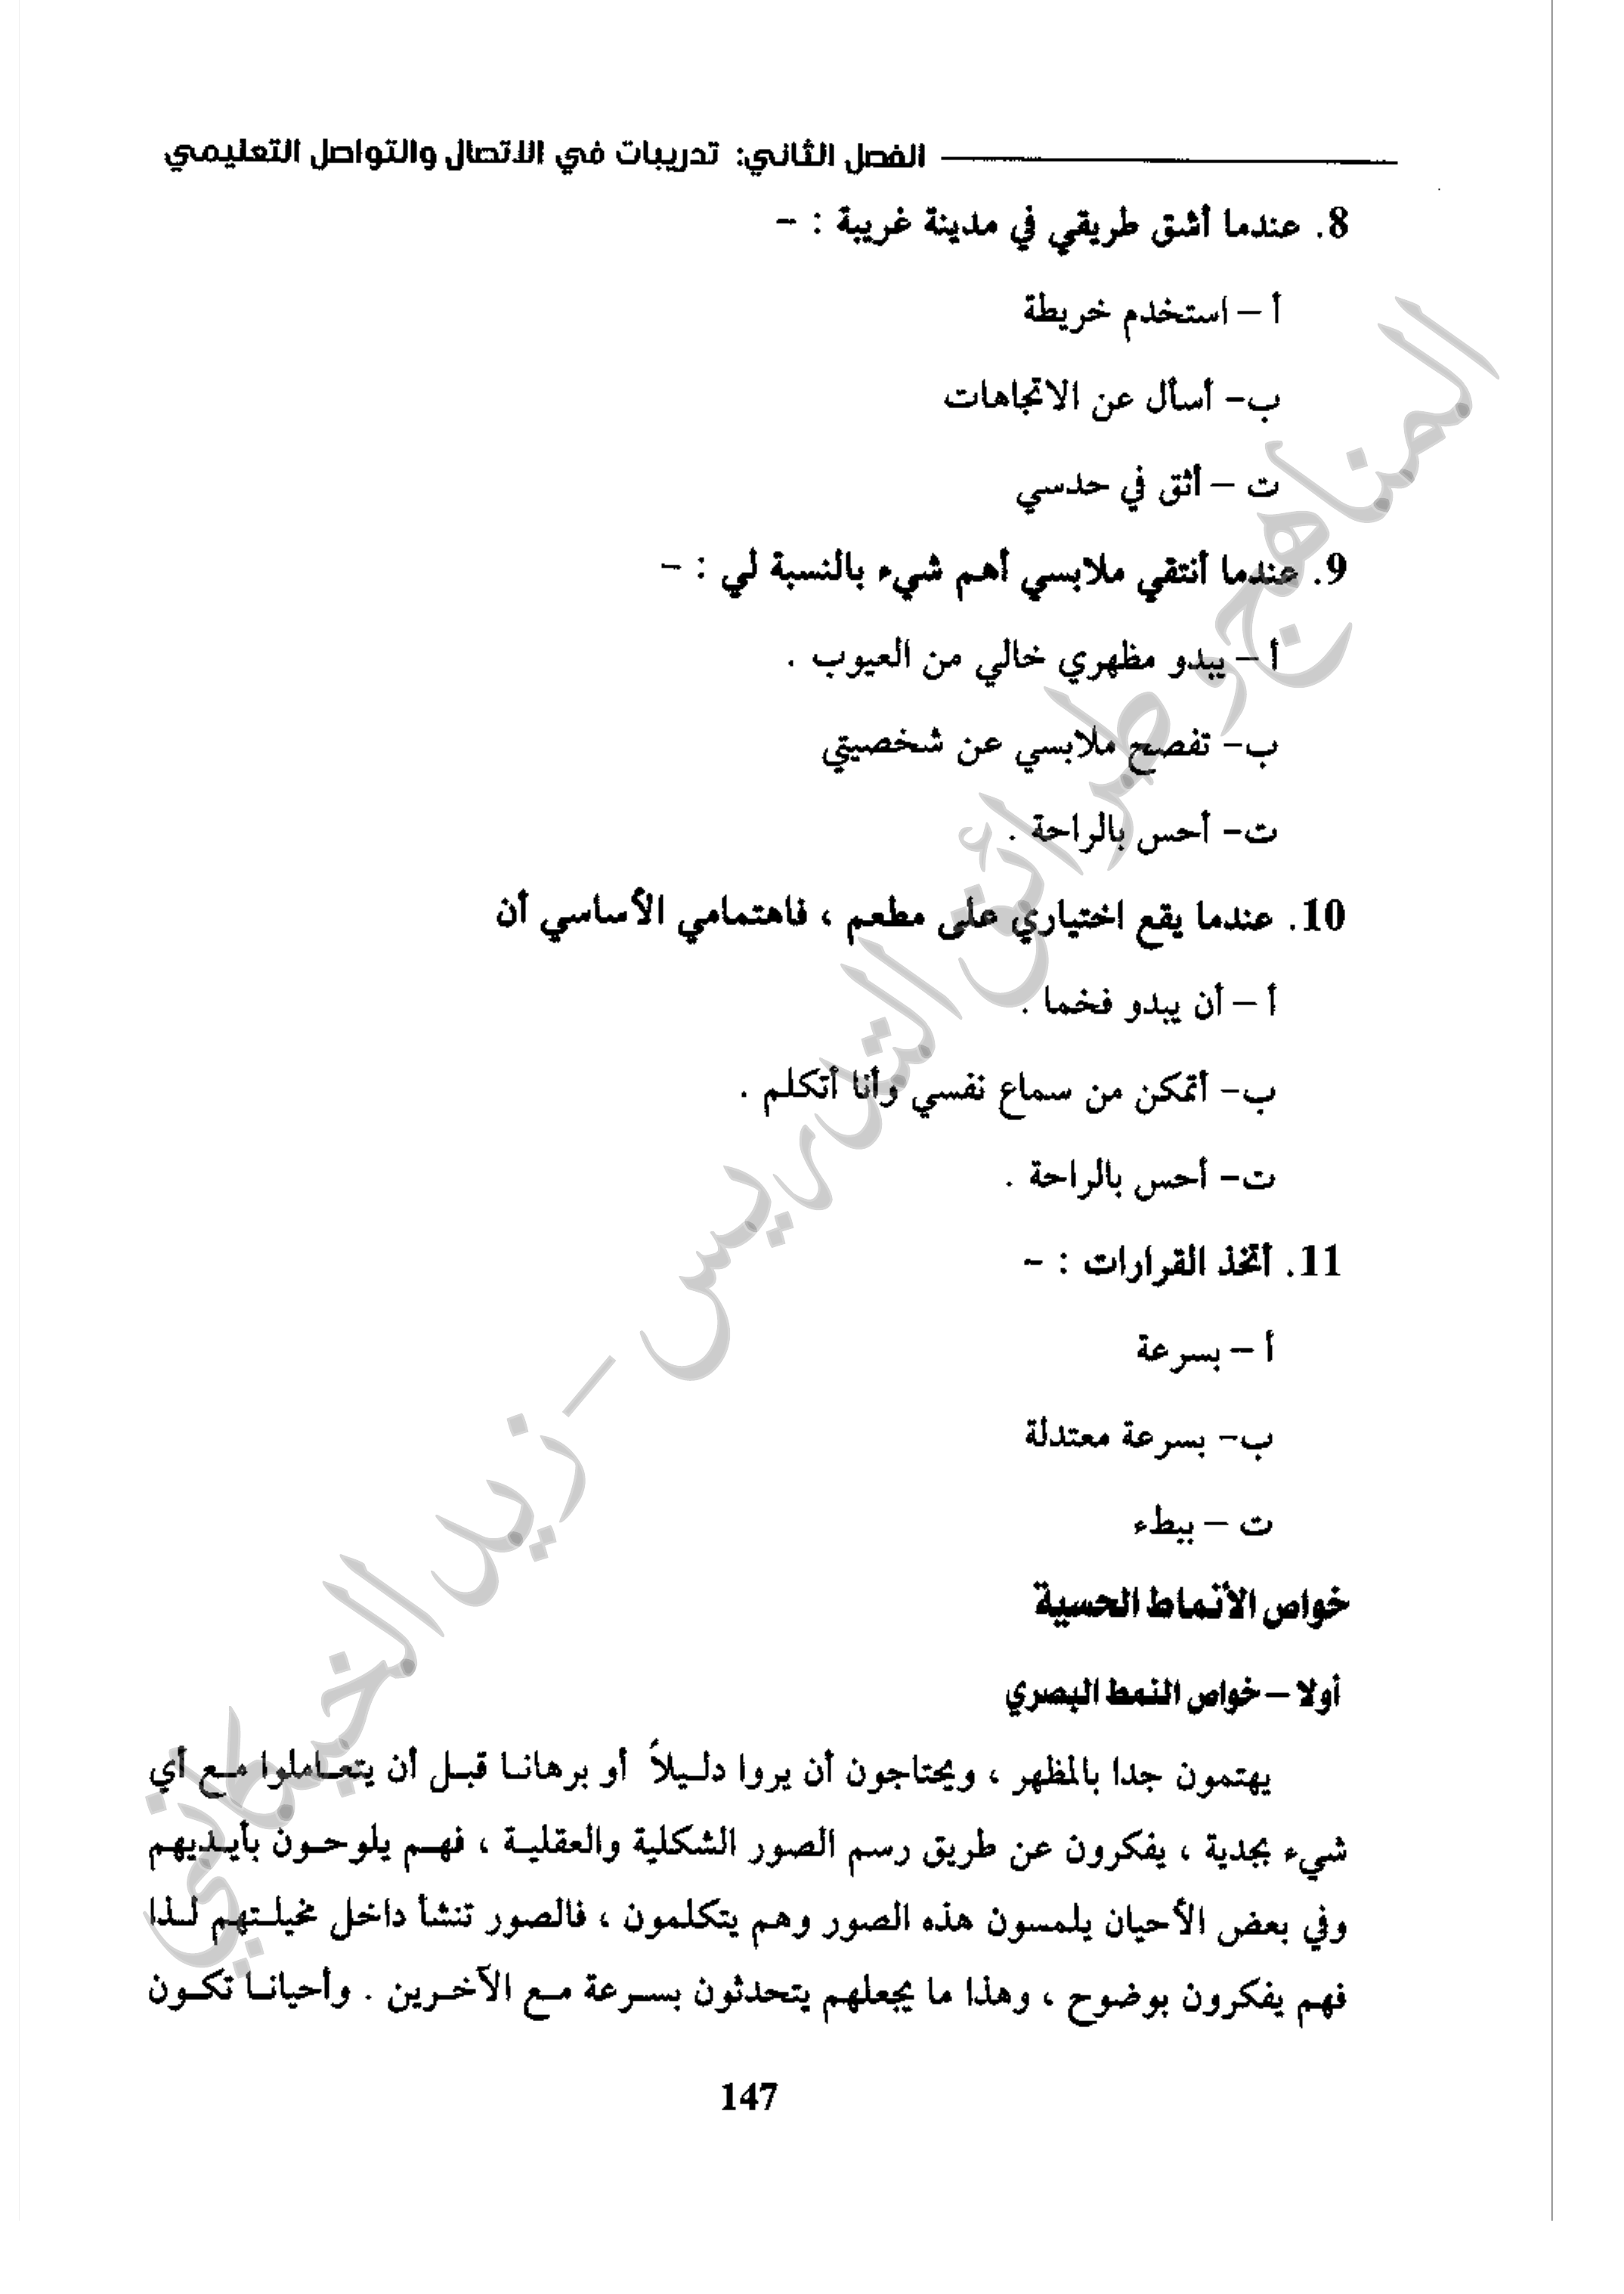 الفصل الثاني: تدريبات في الاتصال والتواصل التعليمي
8. عندما أشق طريقي في مدينة غريبة : -
أ – استخدم خريطة
ب- أسأل عن الاتجاهات
ت – أثق في حدسي
9. عندما أنتقي ملابسي أهم شيء بالنسبة لي : -
أ – يبدو مظهري خالي من العيوب .
ب- تفصح ملابسي عن شخصيتي
ت- أحس بالراحة .
10. عندما يقع اختياري على مطعم ، فاهتمامي الأساسي أن
أ – أن يبدو فخما .
ب- أتمكن من سماع نفسي وأنا أتكلم .
ت- أحس بالراحة .
11. أتخذ القرارات : -
أ – بسرعة
ب- بسرعة معتدلة
ت – ببطء
خواص الأنماط الحسية
أولا – خواص النمط البصري
يهتمون جدا بالمظهر ، ويحتاجون أن يروا دليلاً أو برهانا قبل أن يتعاملوا مع أي
شيء بجدية ، يفكرون عن طريق رسم الصور الشكلية والعقلية ، فهم يلوحون بأيديهم
وفي بعض الأحيان يلمسون هذه الصور وهم يتكلمون ، فالصور تنشأ داخل مخيلتهم لذا
فهم يفكرون بوضوح ، وهذا ما يجعلهم يتحدثون بسرعة مع الآخرين . وأحيانا تكون
147
المناهج وطرائق التدريس – زيد الخيكاني